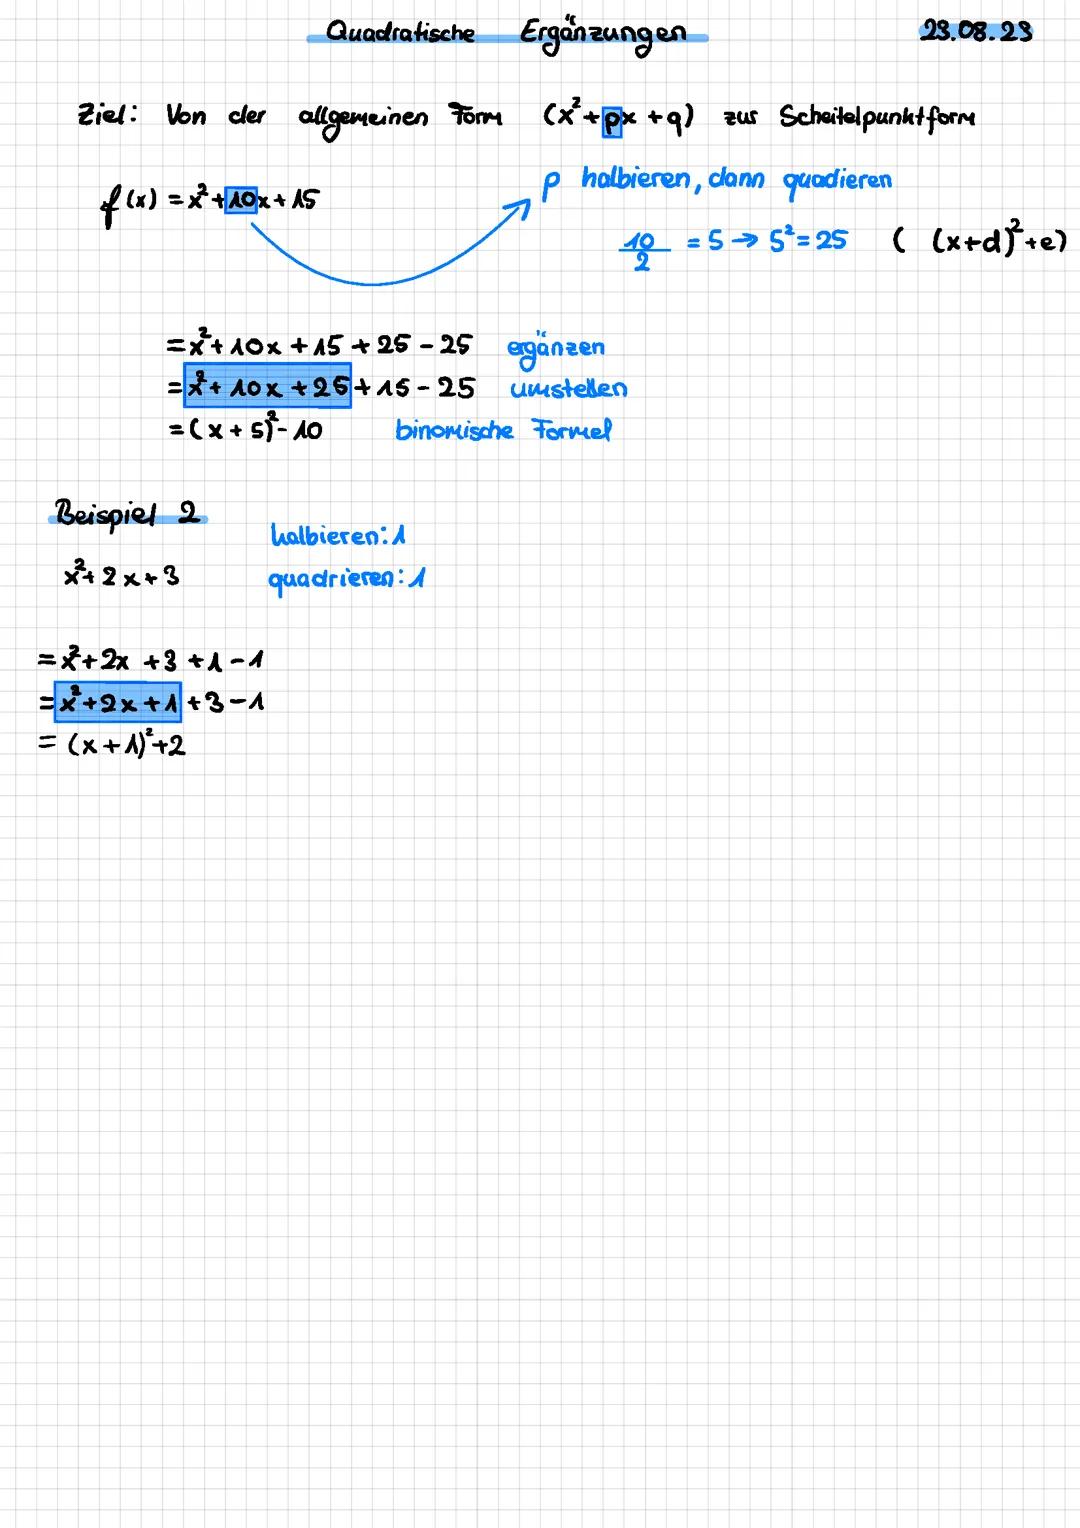 Quadratische Ergänzungen 23.08.23
Ziel: Von der allgemeinen Form (x²+px+q) zur Scheitelpunktform
p halbieren, dann quadieren
f(x) = x²+10x+15
10/2 = 5 → 5²=25 ( (x+d)²+e)
=x²+10x+15+25-25 ergänzen
=x²+10x+25+15-25 umstellen
=(x+5)²-10 binomische Formel
Beispiel 2
halbieren: 1
x²+2x+3 quadrieren: 1
=x²+2x+3+1-1
=x²+2x+1+3-1
= (x+1)²+2